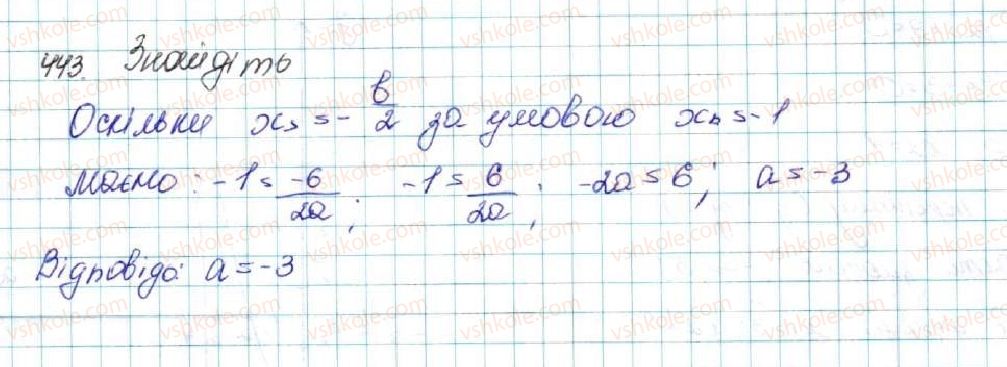 443. Знайдіть
Оскільки xв = - b/2 за умовою xв = -1
Маємо: -1 = -6/2a; -1 = 6/2a; -2a = 6; a = -3
Відповідь: a = -3